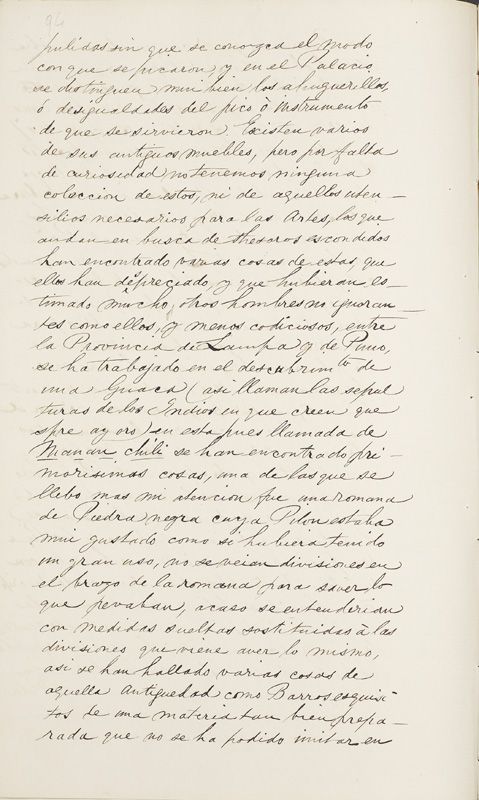 94
pulidas sin que se conozca el modo
con que se picaron, y en el Palacio
se distinguen mui bien los ahugerillos,
ó desigualdades del pico ò instrumento
de que se sirvieron. Existen varios
de sus antiguos muebles, pero por falta
de curiosidad no tenemos ninguna
coleccion de estos, ni de aquellos uten-
silios necesarios para las Artes, los que
andan en busca de thesoros escondidos
han encontrado varias cosas de estas, que
ellos han depreciado, y que hubieran es-
timado mucho, otros hombres no ignoran-
tes como ellos, y menos codiciosos, entre
la Provincia de Lampa y de Puno,
se ha trabajado en el descubrimto de
una Guaca (asi llaman las sepul
turas de los Indios en que creen que
spre ay oro) en esta pues llamada de
Manan chili se han encontrado pri-
morisimas cosas, una de las que se
llebo mas mi atencion fue una romana
de Piedra negra cuya Pilon estaba
mui gustado como si hubiera tenido
un gran uso, no se veian divisiones en
el brazo de la romana para saver lo
que pevaban, acaso se entenderian
con medidas sueltas sostituidas à las
divisiones que viene aver lo mismo,
asi se han hallado varias cosas de
aquella Antiguedad como Barros esquisi-
tos de una materia tan bien prepa-
rada que no se ha podido imitar en